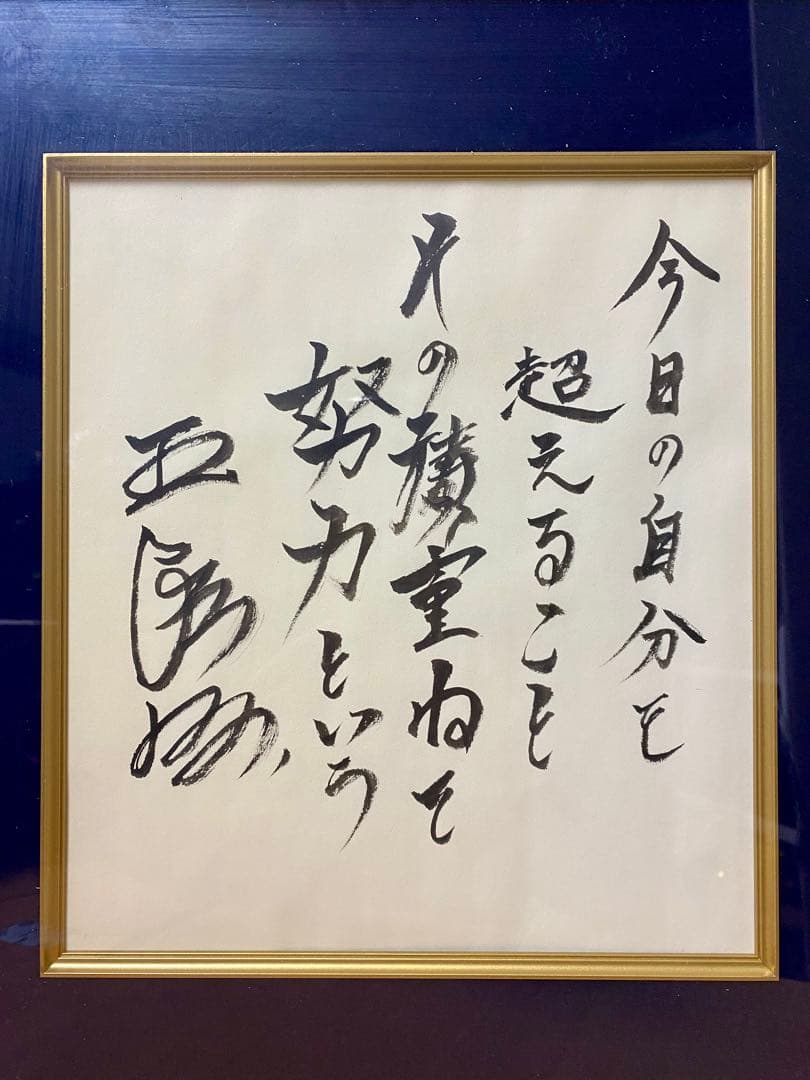 今日の自分を
超えること
その積重ねを
努力という